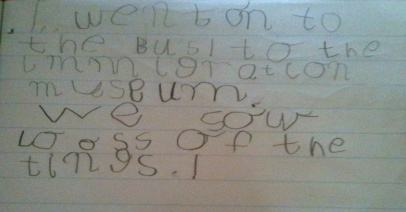 . I wen t on to
the Bus I to the
immigration
museum.
We sow
lo oss of the
tings. I